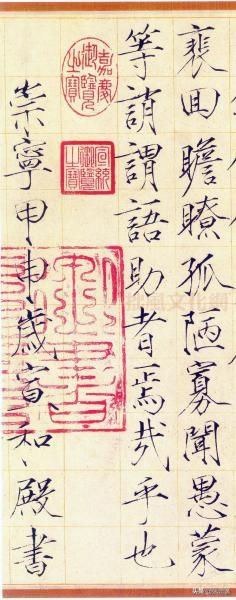 裴回瞻瞭孤陋寡聞愚蒙
等誚謂語助者焉哉乎也
崇寧甲申歲宣和殿書
嘉慶御覽之寶
宣統御覽之寶